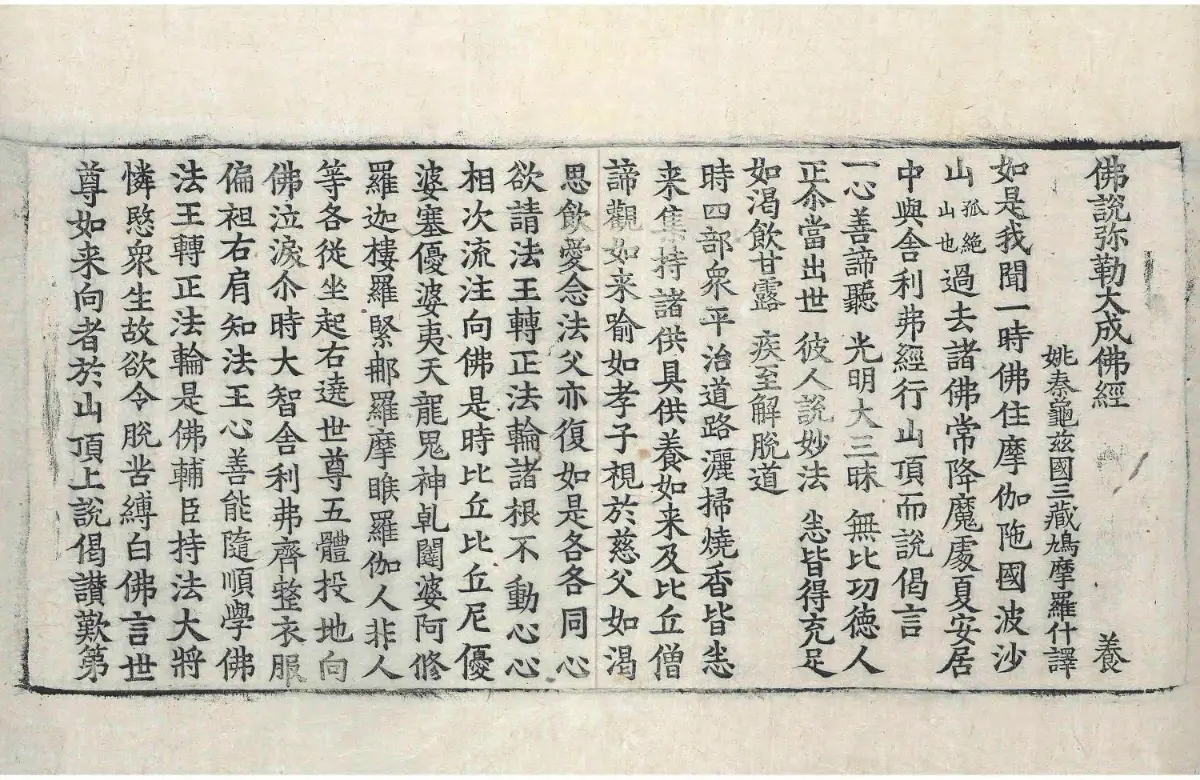 佛說弥勒大成佛經 養
姚秦龜茲國三藏鳩摩羅什譯
如是我聞一時佛住摩伽陁國波沙
山孤絶山也過去諸佛常降魔處夏安居
中與舍利弗經行山頂而說偈言
一心善諦聽 光明大三昧 無比功徳人
正尒當出世 彼人說妙法 悉皆得充足
如渴飲甘露 疾至解脫道
時四部衆平治道路灑掃燒香皆悉
来集持諸供具供養如来及比丘僧
諦觀如来喻如孝子視於慈父如渴
思飲愛念法父亦復如是各各同心
欲請法王轉正法輪諸根不動心心
相次流注向佛是時比丘比丘尼優
婆塞優婆夷天龍鬼神乹闥婆阿修
羅迦樓羅緊那羅摩睺羅伽人非人
等各從坐起右遶世尊五體投地向
佛泣淚尒時大智舍利弗齊整衣服
偏袒右肩知法王心善能隨順學佛
法王轉正法輪是佛輔臣持法大將
憐愍衆生故欲令脫苦縛白佛言世
尊如来向者於山頂上說偈讃歎第